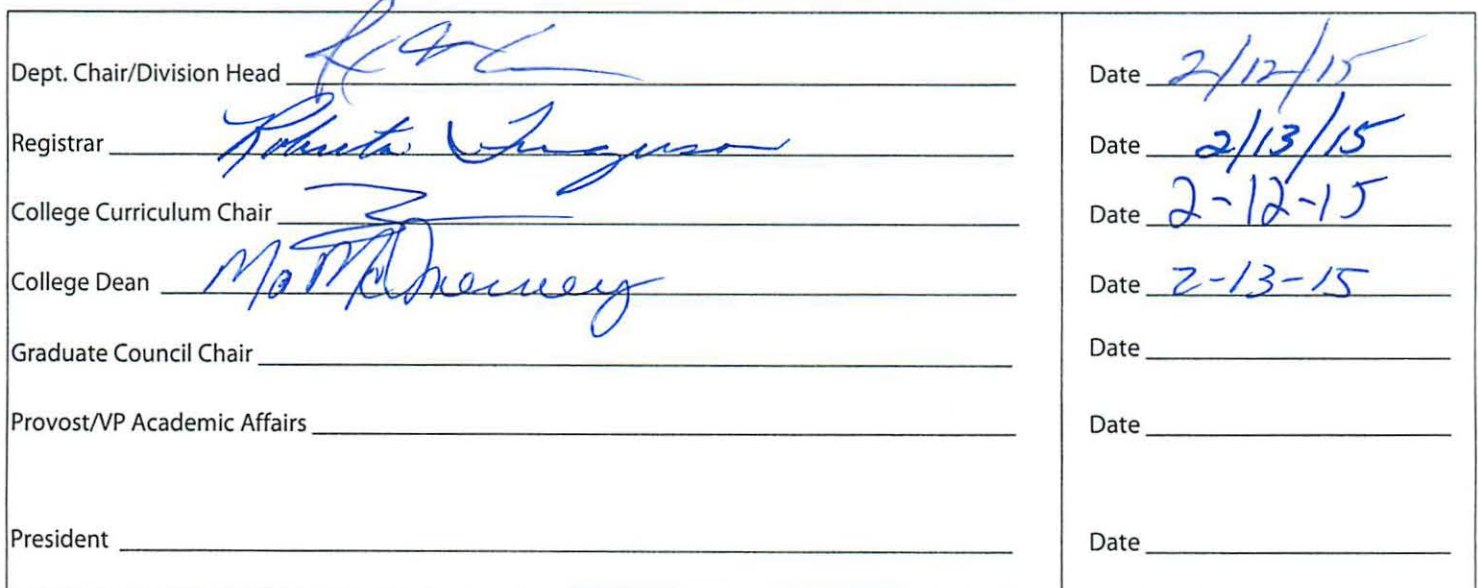 Dept. Chair/Division Head Date 2/12/15
Registrar Roberta Ferguson Date 2/13/15
College Curriculum Chair Date 2-12-15
College Dean Date 2-13-15
Graduate Council Chair Date
Provost/VP Academic Affairs Date
President Date